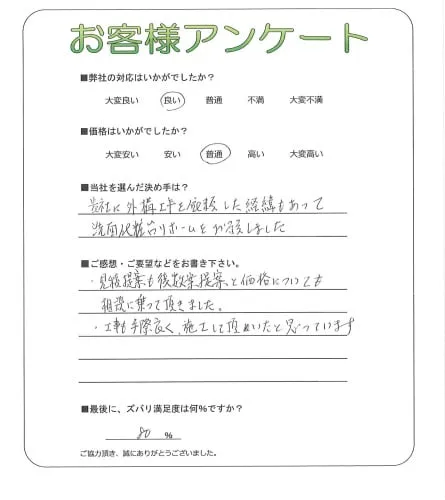 お客様アンケート
■弊社の対応はいかがでしたか?
大変良い 良い 普通 不満 大変不満
■価格はいかがでしたか?
大変安い 安い 普通 高い 大変高い
■当社を選んだ決め手は?
貴社に外構工事を依頼した経緯もあって
洗面化粧台リホームをお願しました
■ご感想・ご要望などをお書き下さい。
・見積提案も複数案提案、と価格についても
相談に乗って頂きました。
・工事も手際良く、施工して頂めいたと思っています
■最後に、ズバリ満足度は何%ですか?
80 %
ご協力頂き、誠にありがとうございました。